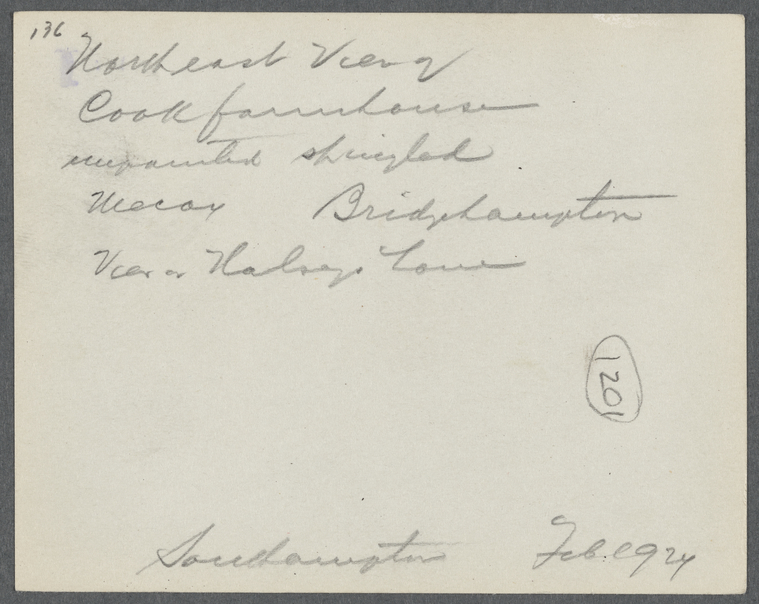 136
Northeast View of
Cook farmhouse
unpainted shingled
Mecox Bridgehampton
View Halseys Lane
1201
Southampton Feb. 1924